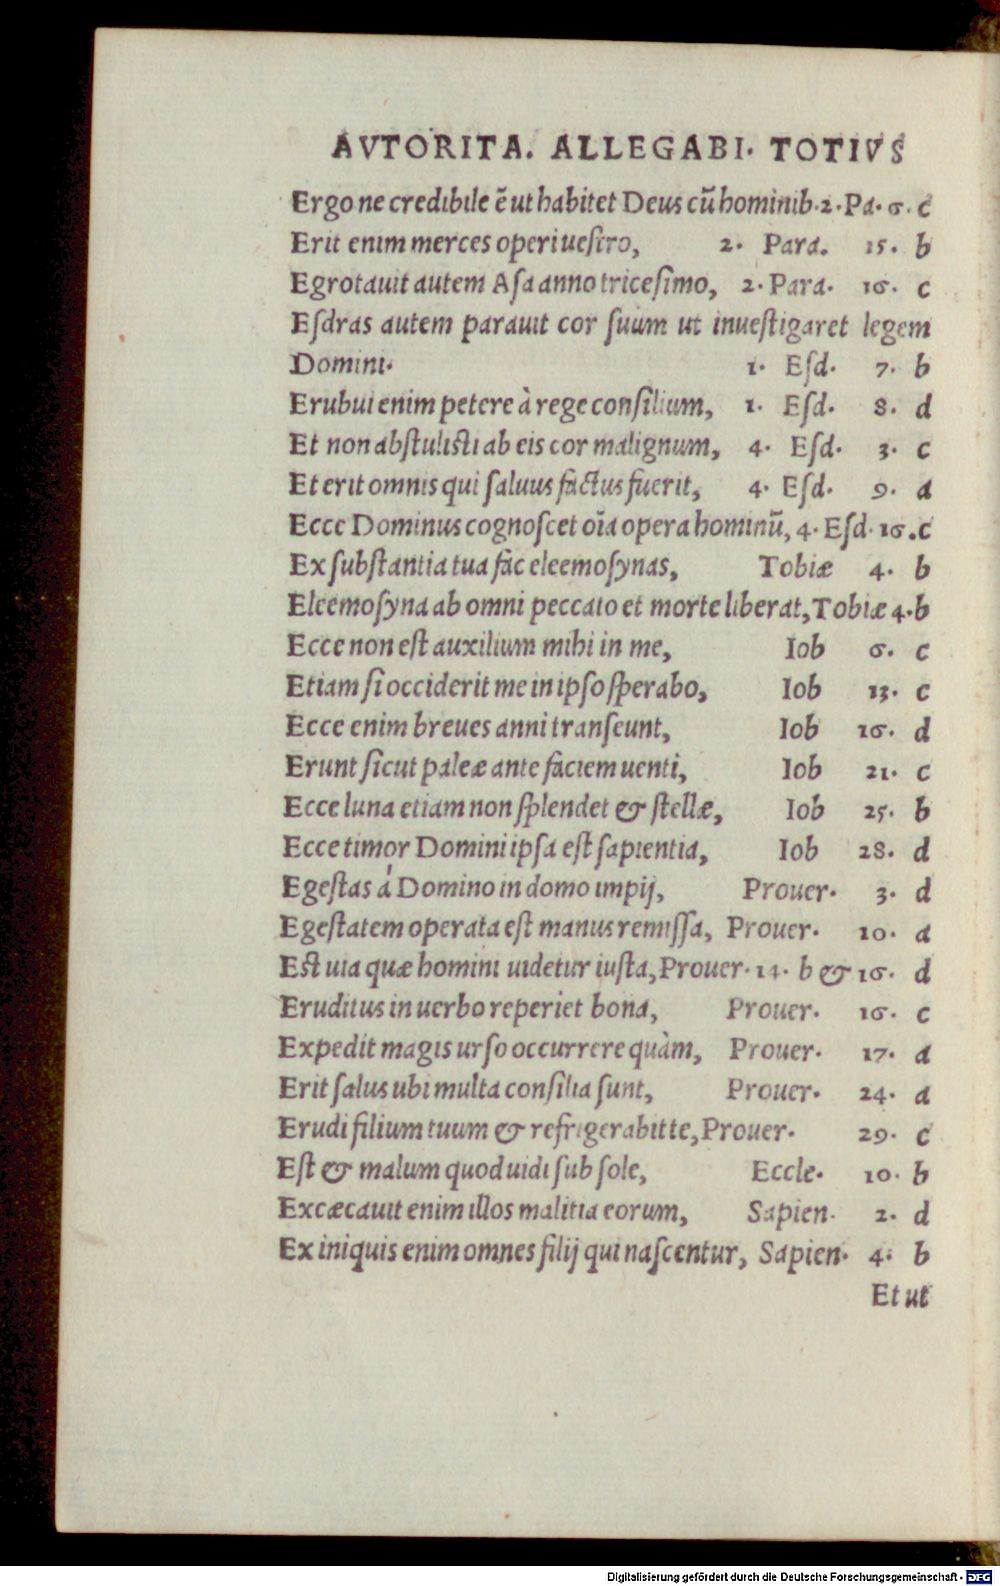 AVTORITA. ALLEGABI. TOTIVS
Ergo ne credibile ē ut habitet Deus cū hominib. 2. Pa. 6. c
Erit enim merces operi uestro, 2. Para. 15. b
Egrotauit autem Asa anno tricesimo, 2. Para. 16. c
Eſdras autem parauit cor ſuum ut inueſtigaret legem
Domini. 1. Eſd. 7. b
Erubui enim petere à rege conſilium, 1. Eſd. 8. d
Et non abſtuliſti ab eis cor malignum, 4. Eſd. 3. c
Et erit omnis qui ſaluus factus fuerit, 4. Eſd. 9. a
Ecce Dominus cognoſcet oīa opera hominū, 4. Eſd. 16. c
Ex ſubſtantia tua fac eleemoſynas, Tobiæ 4. b
Eleemoſyna ab omni peccato et morte liberat, Tobiæ 4. b
Ecce non eſt auxilium mihi in me, Iob 6. c
Etiam ſi occiderit me in ipſo ſperabo, Iob 13. c
Ecce enim breues anni tranſeunt, Iob 16. d
Erunt ſicut paleæ ante faciem uenti, Iob 21. c
Ecce luna etiam non ſplendet & ſtellæ, Iob 25. b
Ecce timor Domini ipſa eſt ſapientia, Iob 28. d
Egeſtas á Domino in domo impij, Prouer. 3. d
Egeſtatem operata eſt manus remiſſa, Prouer. 10. a
Eſt uia quæ homini uidetur iuſta, Prouer. 14. b & 16. d
Eruditus in uerbo reperiet bona, Prouer. 16. c
Expedit magis urſo occurrere quàm, Prouer. 17. a
Erit ſalus ubi multa conſilia ſunt, Prouer. 24. a
Erudi filium tuum & refrigerabit te, Prouer. 29. c
Eſt & malum quod uidi ſub ſole, Eccle. 10. b
Excæcauit enim illos malitia eorum, Sapien. 2. d
Ex iniquis enim omnes filij qui naſcentur, Sapien. 4. b
Et ut
Digitalisierung gefördert durch die Deutsche Forschungsgemeinschaft - DFG